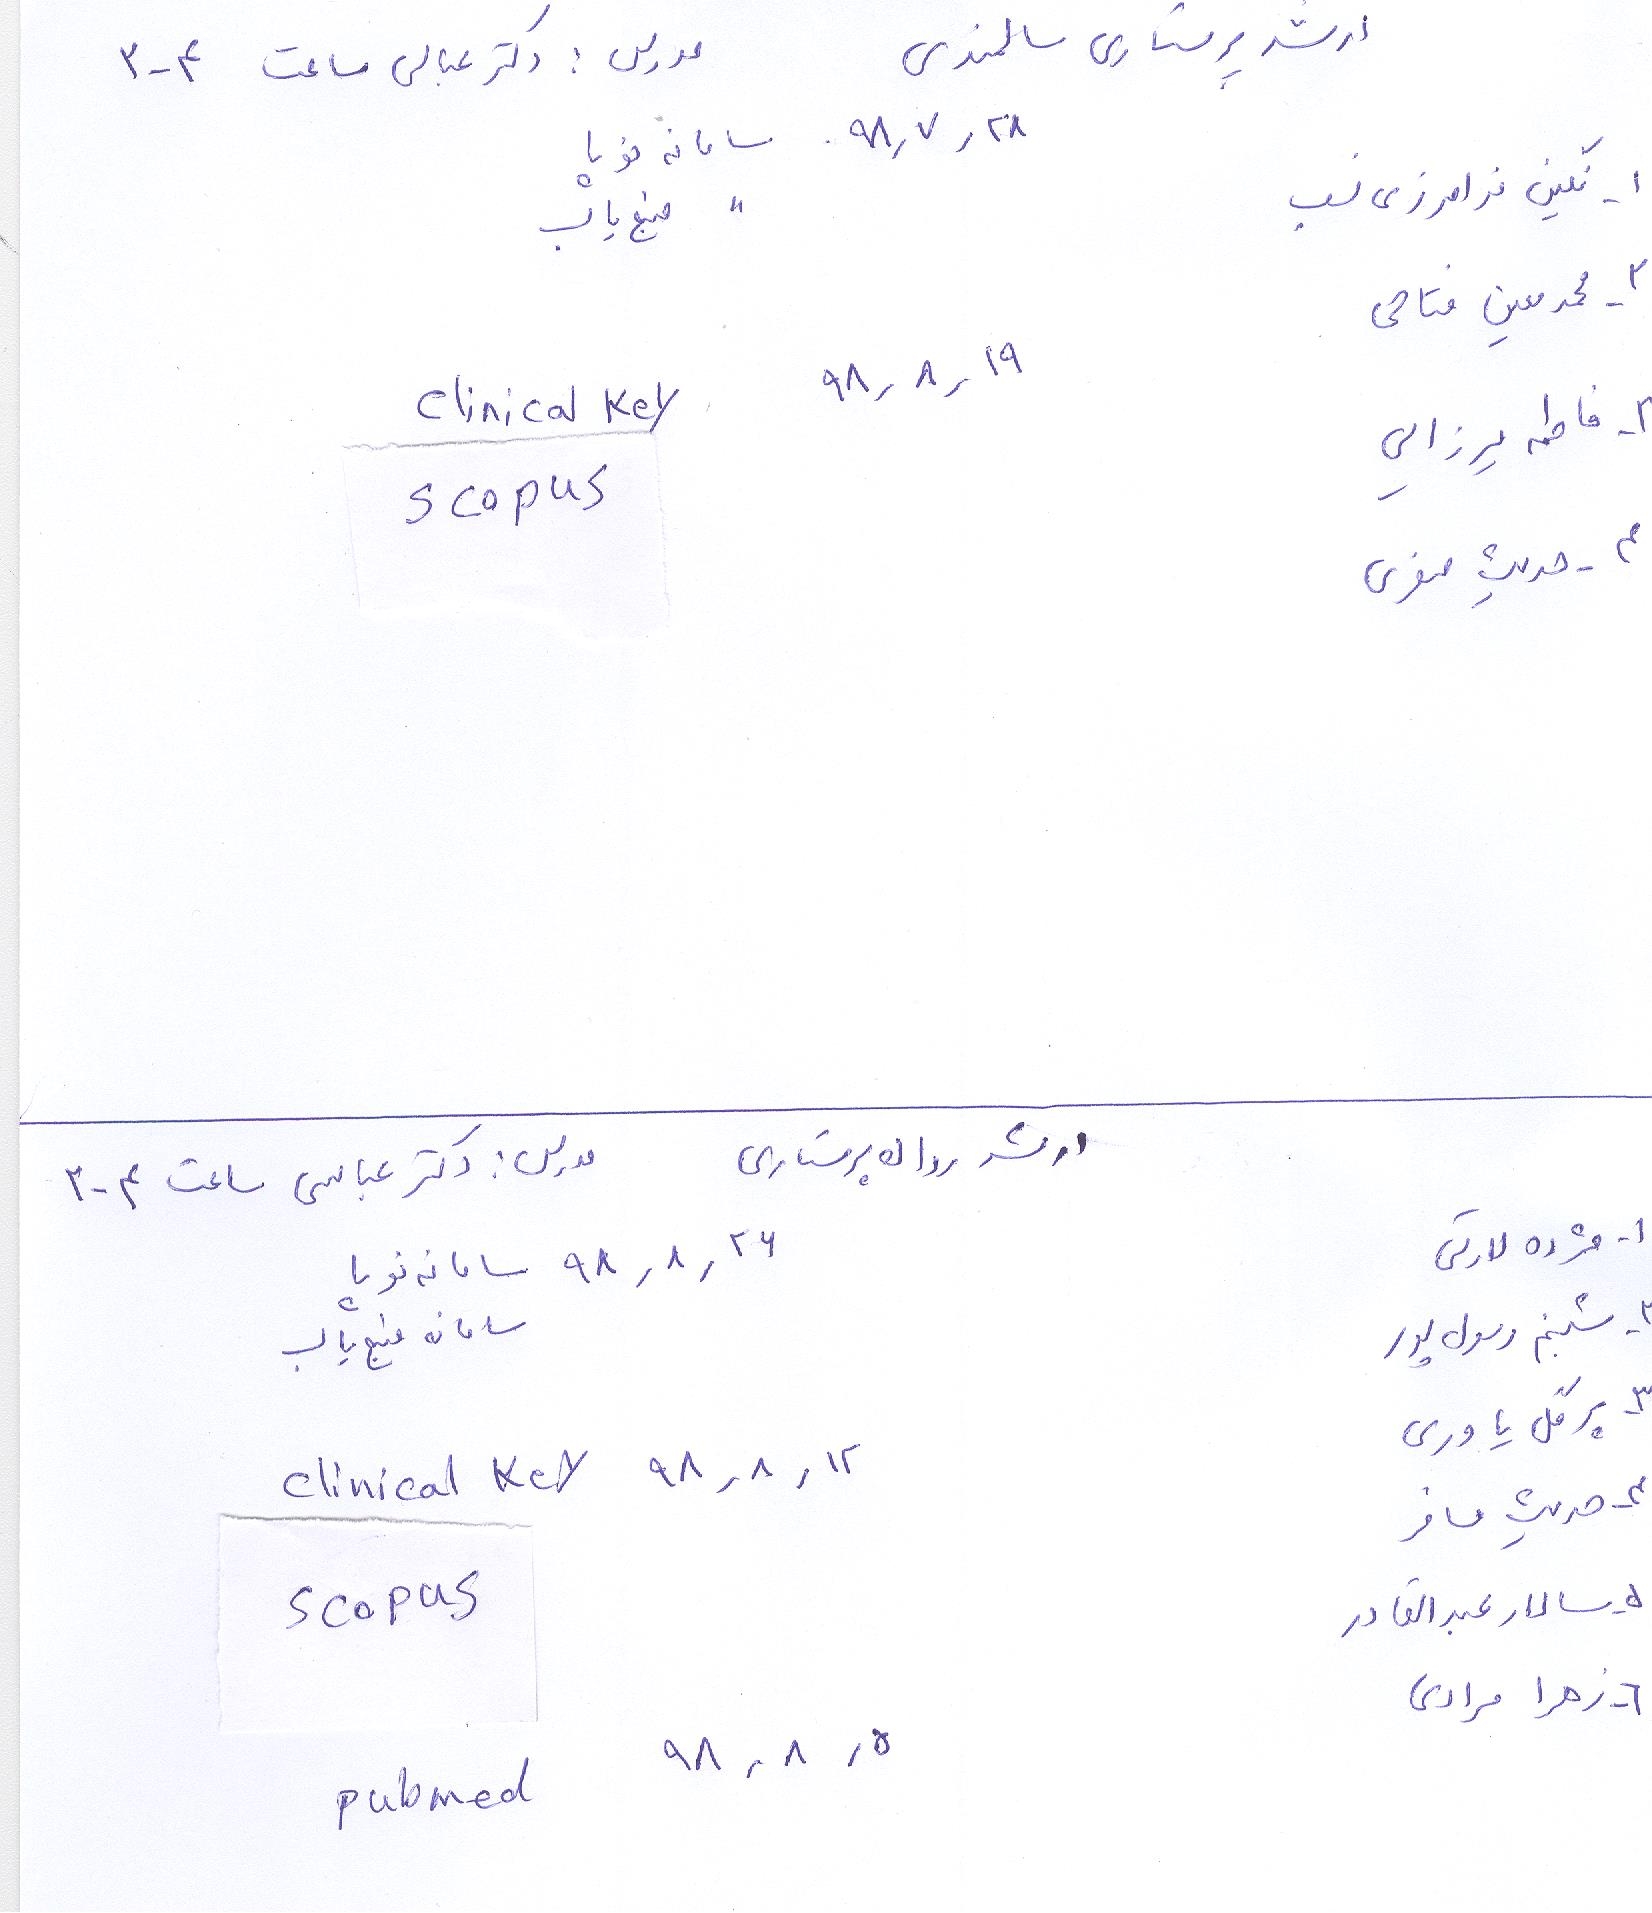 ارشد پرستاری سالمندی مدرس : دکتر عباسی ساعت ۴-۲
۹۸٫۷٫۲۸ سامانه نوپا
" منبع یاب
۱- نگین فرامرزی نسب
۲- محمد معین فتاحی
۹۸٫۸٫۱۹ clinical key
۳- فاطمه میرزایی
scopus
۴- حدیث صفری
ارشد روان پرستاری مدرس : دکتر عباسی ساعت ۴-۲
۱- مژده لارکی
۹۸٫۸٫۲۶ سامانه نوپا
سامانه منبع یاب
۲- شبنم رسول پور
۳- پرگل یاوری
clinical key ۹۸٫۸٫۱۲
۴- حدیث مسافر
scopus
۵- سالار عبدالقادر
۶- زهرا مرادی
pubmed ۹۸٫۸٫۵